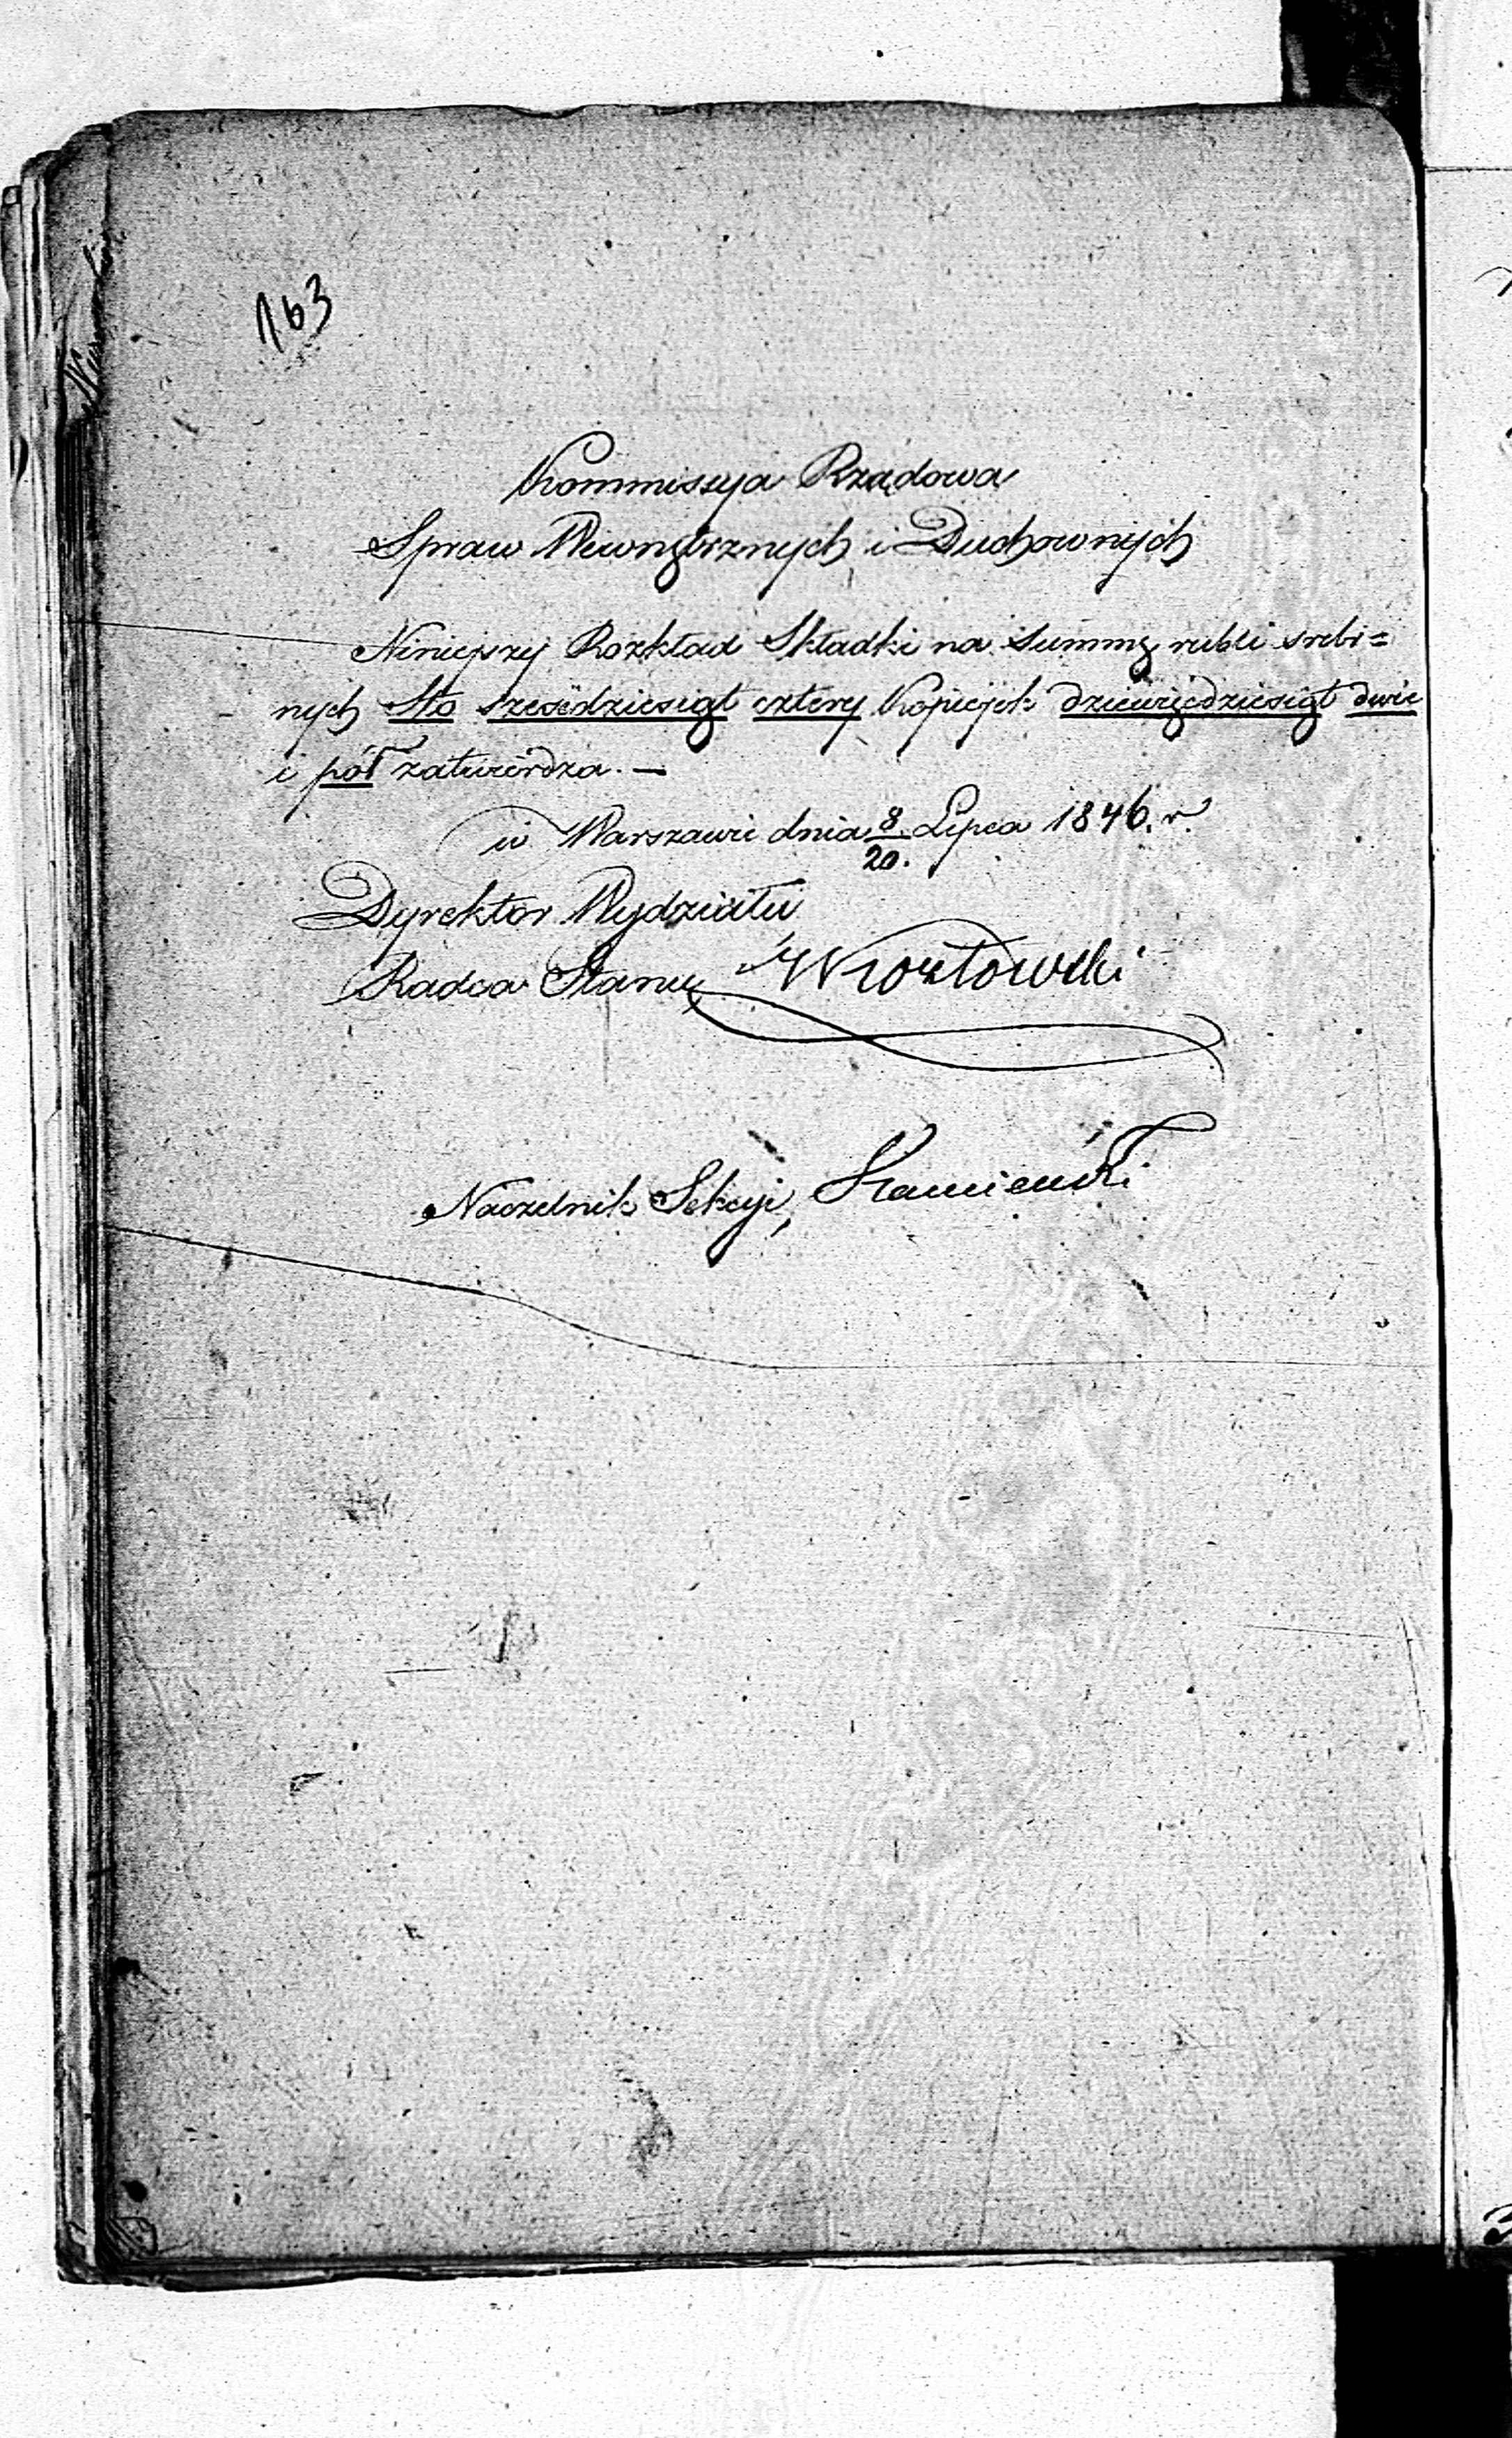 163
Kommissya Rządowa
Spraw Wewnętrznych i Duchownych
Niniejszy Rozkład Składki na Summę rubli srebr=
nych Sto sześćdziesiąt cztery Kopiejek dziewięćdziesiąt dwie
i pół zatwierdza. —
w Warszawie dnia 8/20. Lipca 1846. r.
Dyrektor Wydziału
Radca Stanu
Naczelnik Sekcyi,